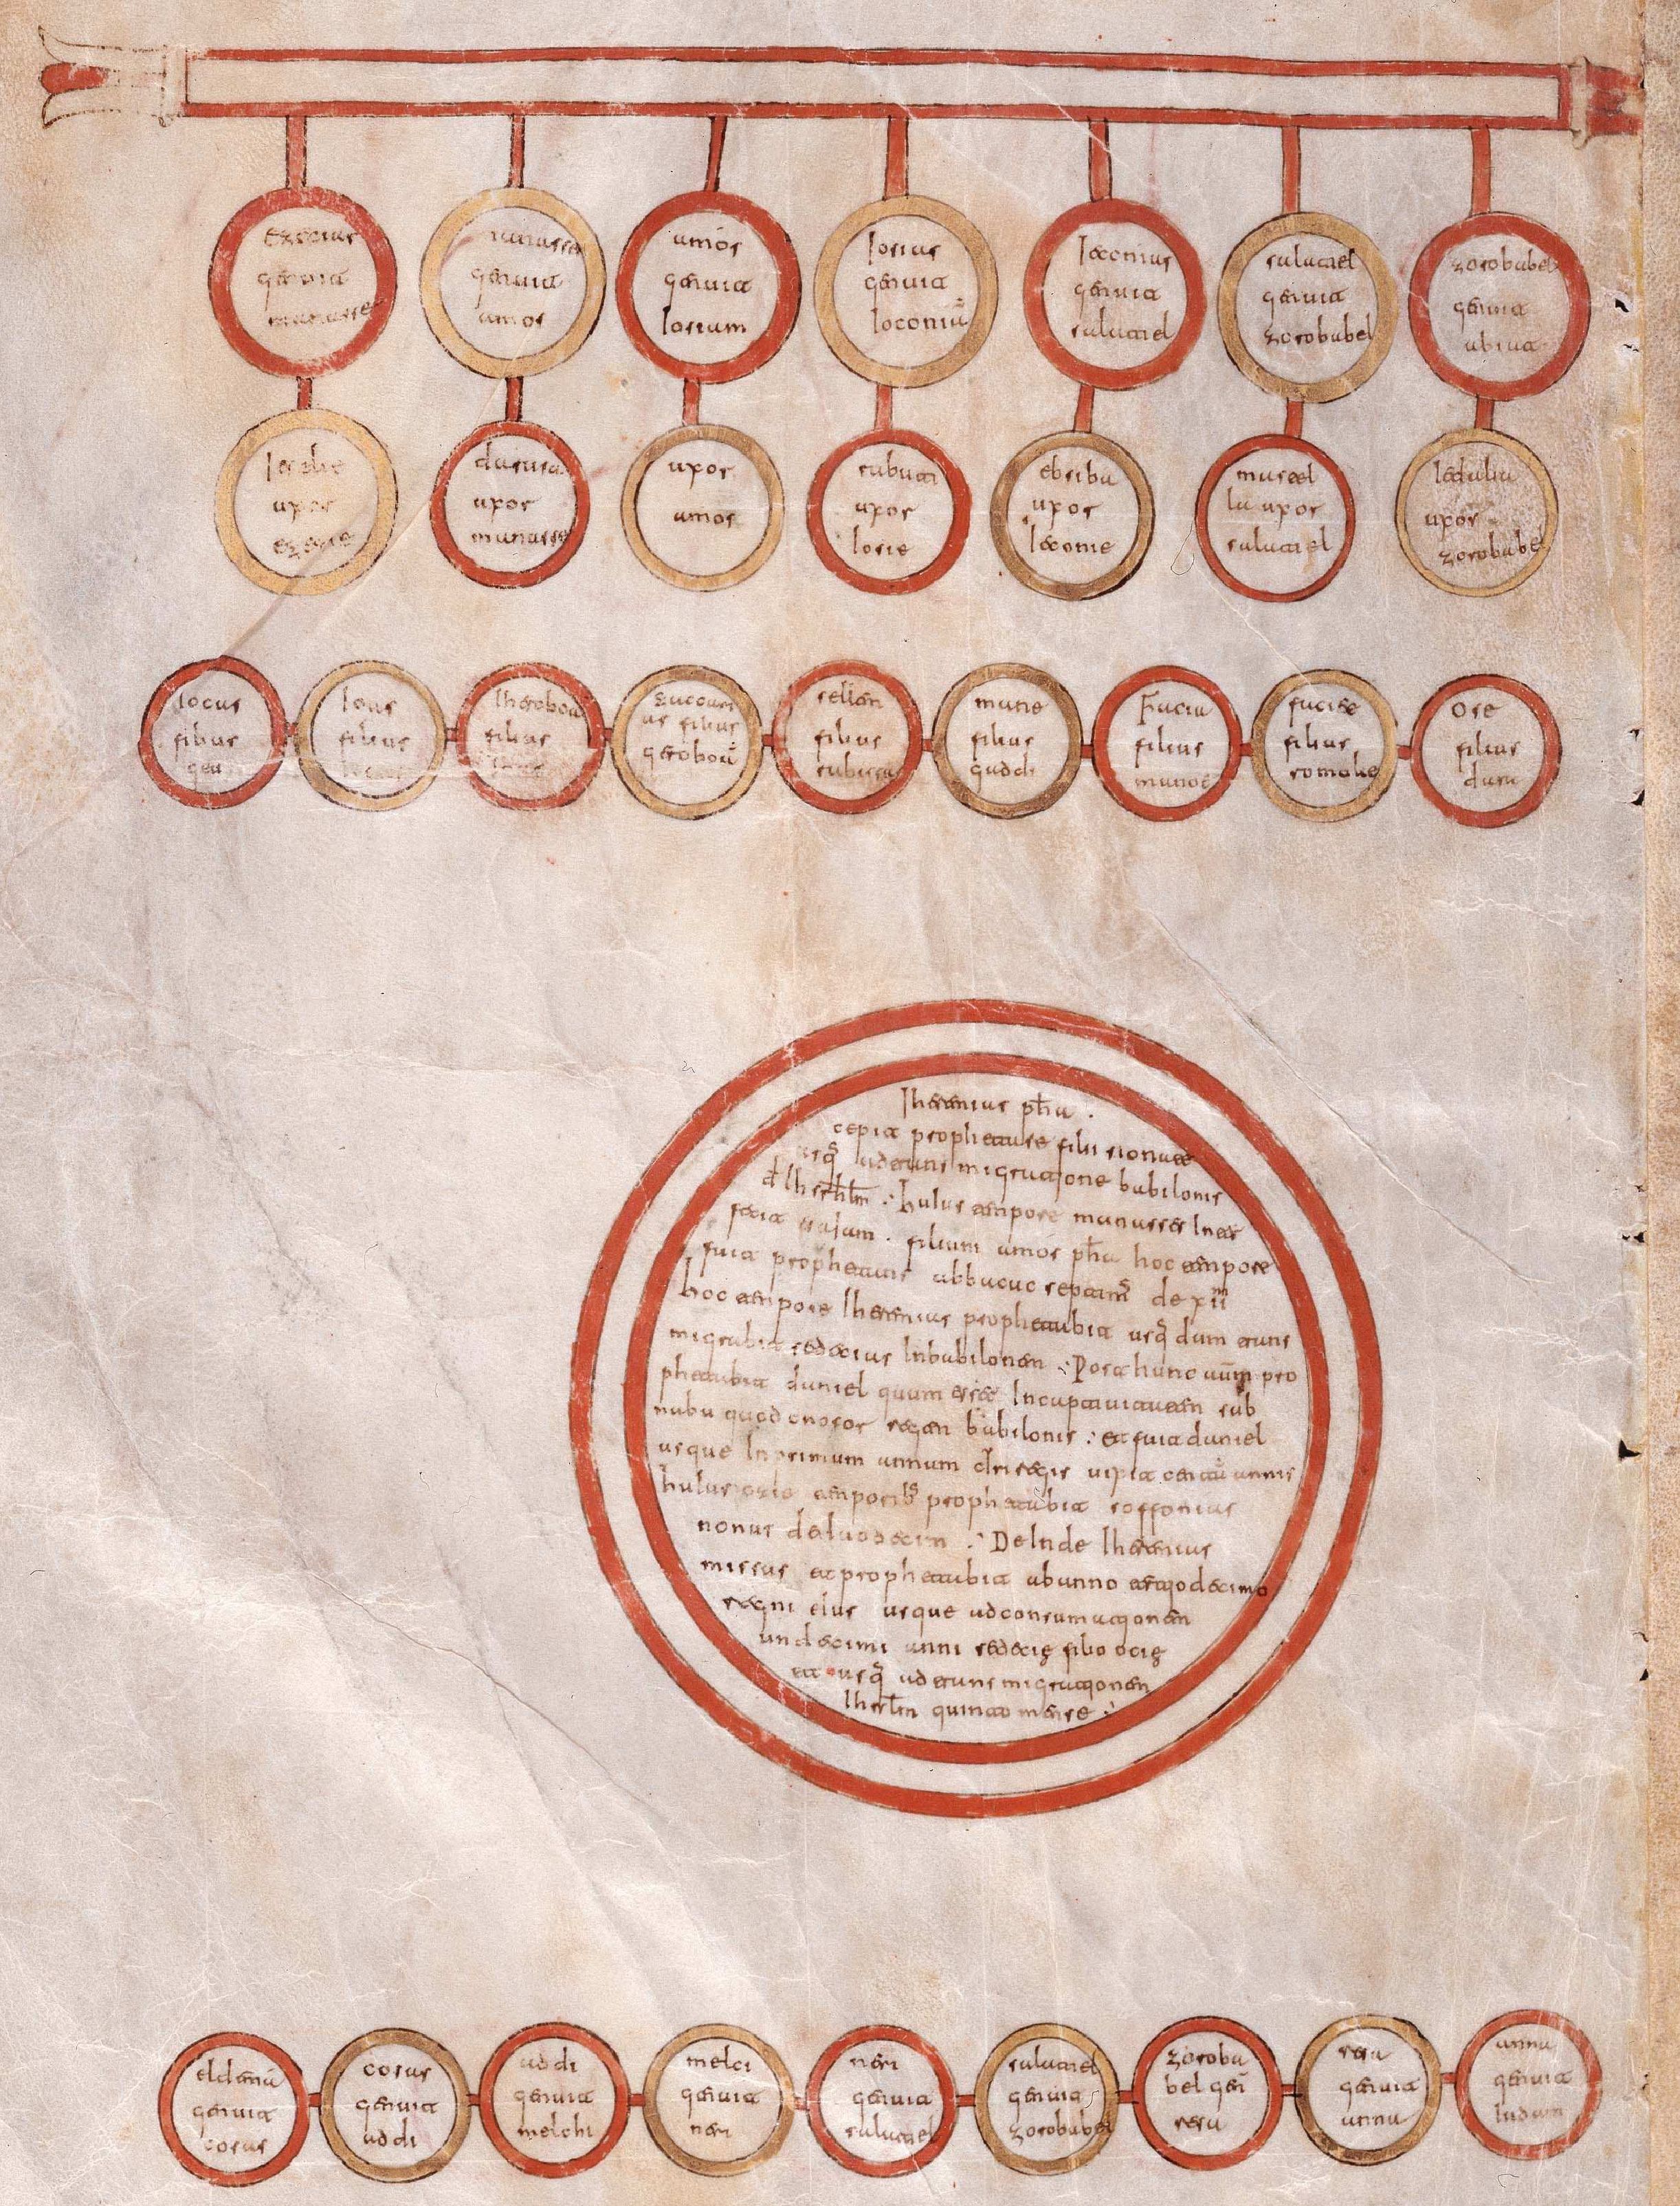 Ezecias
genuit
manasse
manasse
genuit
amos
amos
genuit
Iosiam
Iosias
genuit
Ioconiā
Ieconias
genuit
salatiel
salatiel
genuit
zorobabel
zorobabel
genuit
abiut
uxor
ezecie
uxor
manasse
uxor
amos
uxor
Iosie
ebriba
uxor
Ieconie
la uxor
salatiel
uxor
zorobabel
Iocas
filius
geu
Ioas
filius
Iheroboā
filius
zaccari
as filius
geroboā
sellem
filius
mane
filius
gaddi
Facia
filius
manae
facise
filius
romelie
Ose
filius
dara
Iheremias pħa .
cepit prophetare filii
usq̄ adtransmigratjone babilonis
Ihrslm : huius tempore manasses Inter
fecit esajam . filium amos pħa hoc tempore
fuit prophetans abbacuc septims de xii
hoc tempore Iheremias prophetabit usq̄ dum trans
migrabit sedecias Inbabilonem : Post hunc aūm pro
phetabit daniel quum esset Incaptauitatem sub
nabu quod onosor regem babilonis : et fuit daniel
usque Inprimum annum ciri regis uixit centū annis
huius temporibs prophetabit soffonias
nonus deduodecim : DeInde Iheremias
missus et prophetabit abanno tertjodecimo
regni eius usque adconsumatjonem
undecimi anni sedecię filio ocię
et usq̄ adtransmigratjonem
Ihrslm quinto mense :
eldemā
genuit
cosas
cosas
genuit
addi
addi
genuit
melchi
melci
genuit
neri
neri
genuit
salatiel
salatiel
genuit
zorobabel
zoroba
bel gen̄
resa
resa
genuit
anna
anna
genuit
Iudam